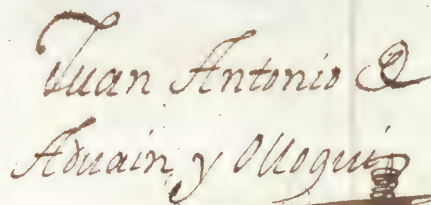 Juan Antonio D
Aduain y Olloqui